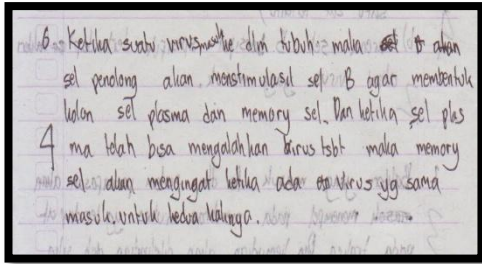 6. Ketika suatu virus masuk ke dlm tubuh maka sel B akan
sel penolong akan menstimulasil sel B agar membentuk
kolon sel plasma dan memory sel. Dan ketika sel plas
4 ma telah bisa mengalahkan birus tsbt maka memory
sel akan mengingat ketika ada virus yg sama
masuk untuk kedua kalinya.